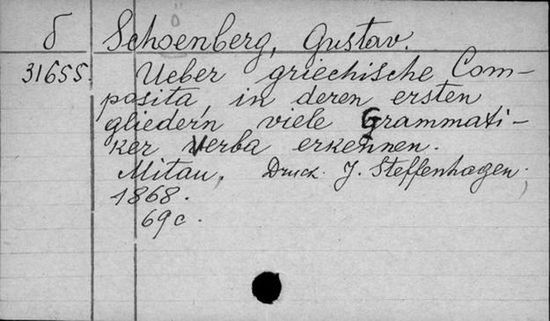 б Schoenberg, Gustav.
31655. Ueber griechische Com-
posita, in deren ersten
gliedern viele Grammati-
ker Verba erkennen.
Mitau. Druck. J. Steffenhagen.
1868.
69 c.